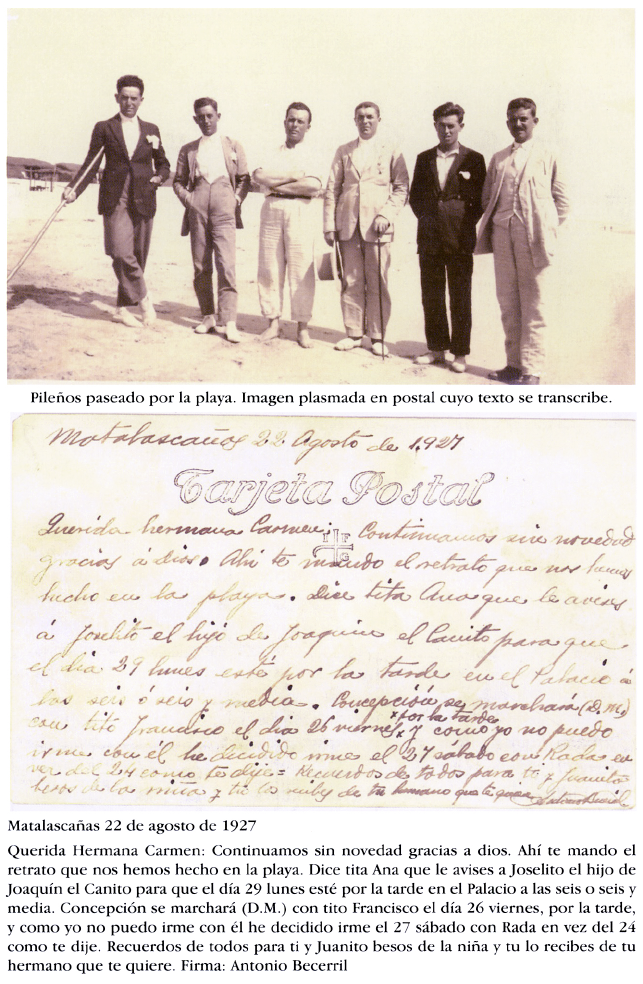 Pileños paseado por la playa. Imagen plasmada en postal cuyo texto se transcribe.
Matalascañas 22 Agosto de 1927
Tarjeta Postal
Querida hermana Carmen: Continuamos sin novedad
gracias á dios. Ahi te mando el retrato que nos hemos
hecho en la playa. Dice tita Ana que le avises
á Joselito el hijo de Joaquin el Canito para que
el dia 29 lunes esté por la tarde en el Palacio á
las seis ó seis y media. Concepción se marchará (D.M.)
con tito Francisco el dia 26 viernes por la tarde y como yo no puedo
irme con él he decidido irme el 27 sábado con Rada en
vez del 24 como te dije = Recuerdos de todos para ti y Juanito
besos de la niña y tu lo recibes de tu hermano que te quiere
Antonio Becerril
Matalascañas 22 de agosto de 1927
Querida Hermana Carmen: Continuamos sin novedad gracias a dios. Ahí te mando el
retrato que nos hemos hecho en la playa. Dice tita Ana que le avises a Joselito el hijo de
Joaquín el Canito para que el día 29 lunes esté por la tarde en el Palacio a las seis o seis y
media. Concepción se marchará (D.M.) con tito Francisco el día 26 viernes, por la tarde,
y como yo no puedo irme con él he decidido irme el 27 sábado con Rada en vez del 24
como te dije. Recuerdos de todos para ti y Juanito besos de la niña y tu lo recibes de tu
hermano que te quiere. Firma: Antonio Becerril